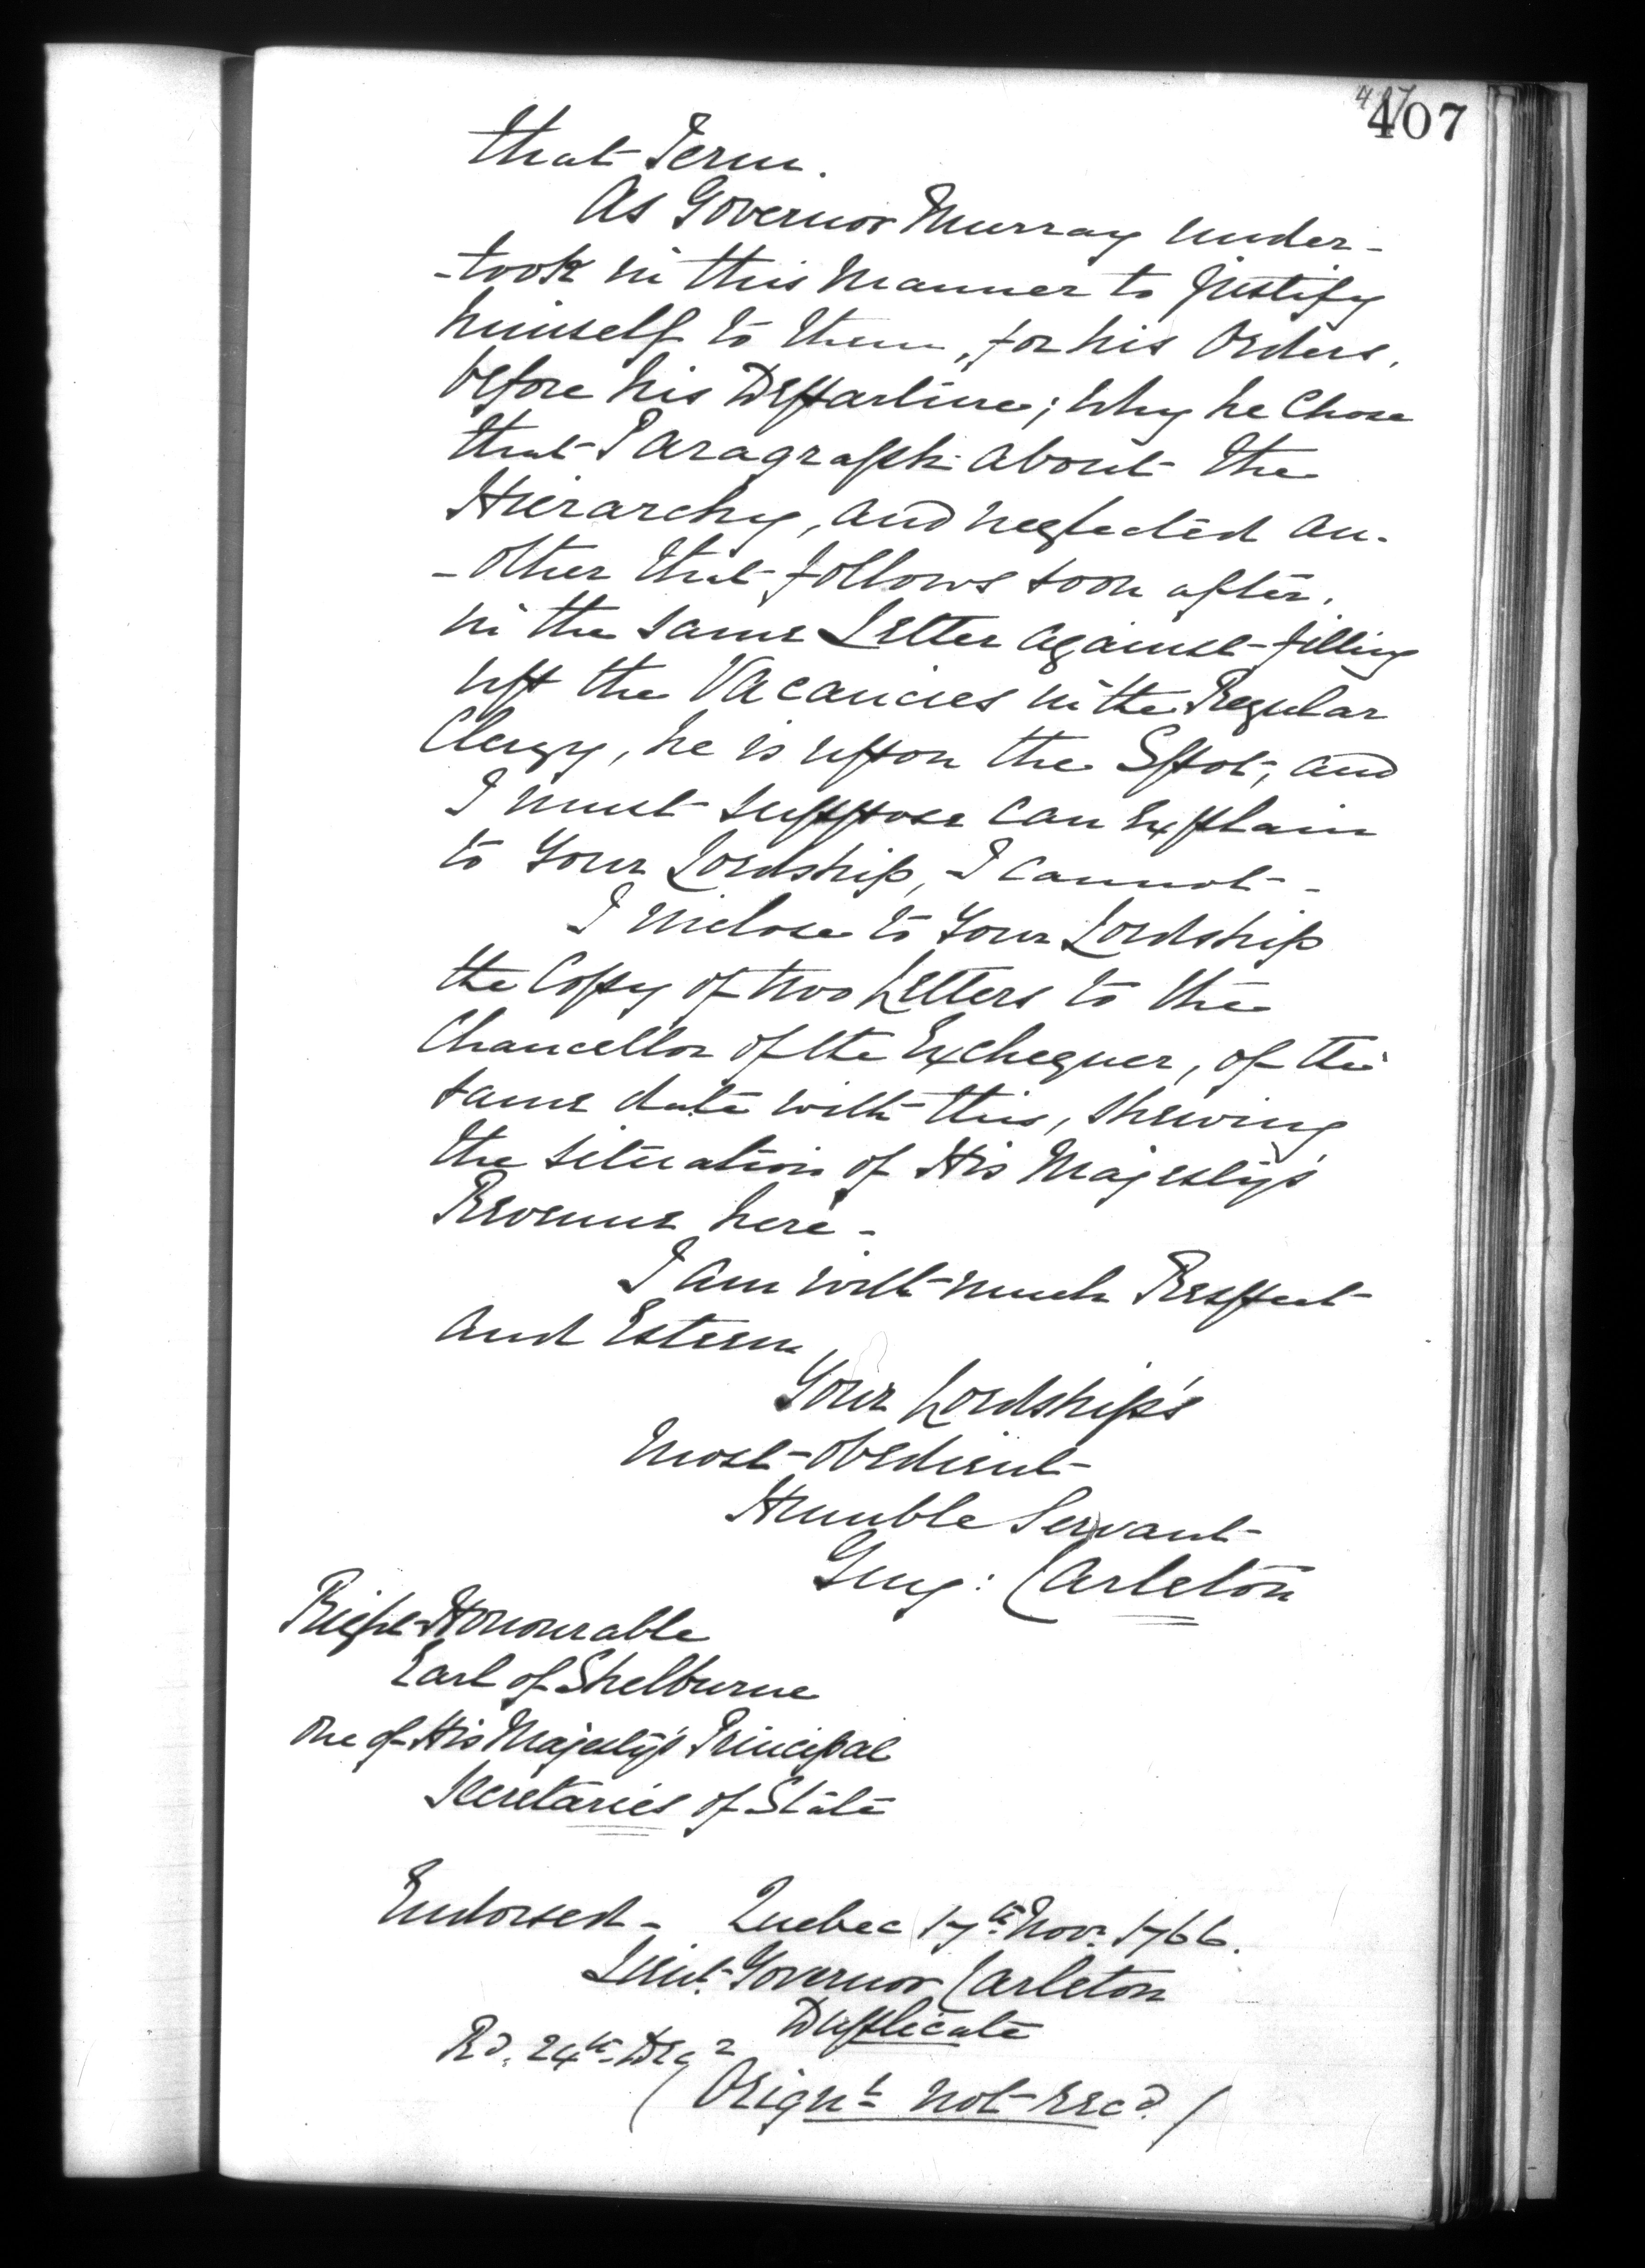 407
407
that Term.
As Governor Murray under-
-took in this Manner to justify
himself to them, for his Orders,
before his Departure; Why he Chose
that Paragraph about the
Hierarchy, and neglected an-
-other that follows soon after,
in the same Letter against filling
up the Vacancies in the Regular
Clergy, he is upon the Spot, and
I must suppose can Explain
to Your Lordship, I cannot -
I inclose to Your Lordship
the Copy of two Letters to the
Chancellor of the Exchequer, of the
same date with this, shewing
the situation of His Majesty's
Revenue here -
I am with much Respect
and Esteem
Your Lordship's
Most Obedient
Humble Servant
Guy: Carleton
Right Honourable
Earl of Shelburne
One of His Majesty's Principal
Secretaries of State
Endorsed - Quebec 17th Novr 1766.
Lieut. Governor Carleton
Duplicate
Rd. 24th Decr
(Orignl not recd)